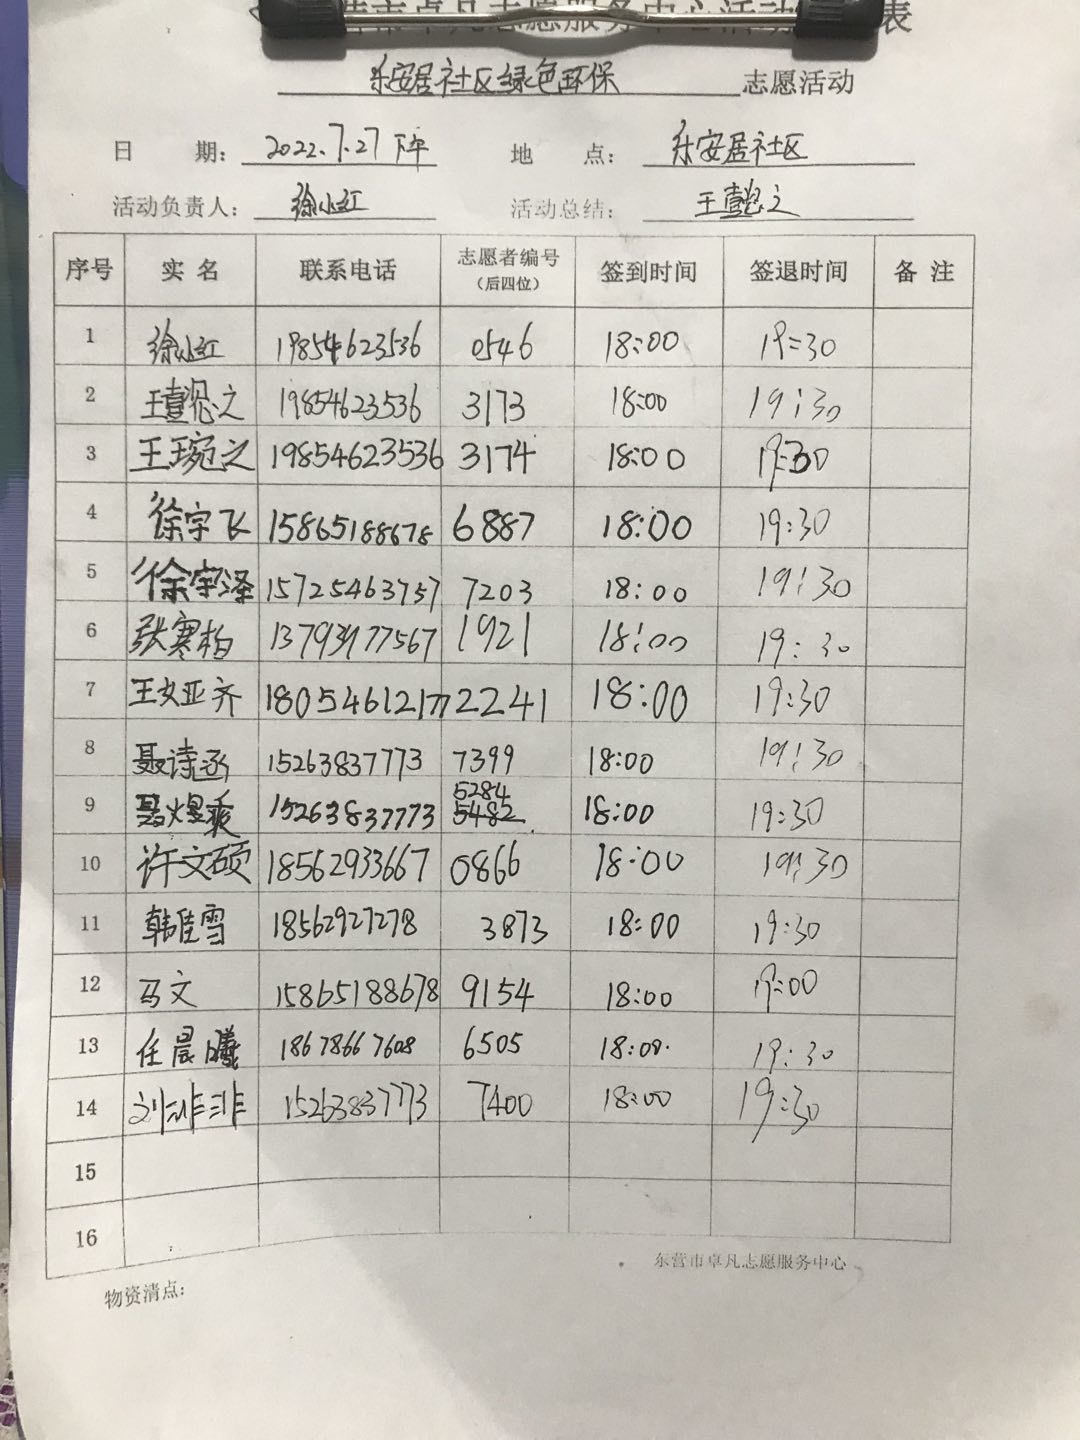 营市卓凡志愿服务中心活动 表
乐安居社区绿色环保 志愿活动
日 期: 2022.7.27下午 地 点: 乐安居社区
活动负责人: 徐小红 活动总结: 王壹惢之
序号 实 名 联系电话 志愿者编号（后四位） 签到时间 签退时间 备 注
1 徐小红 19854623536 0546 18:00 19:30
2 王壹惢之 19854623536 3173 18:00 19:30
3 王琬之 19854623536 3174 18:00 19:30
4 徐宇飞 15865188678 6887 18:00 19:30
5 徐宇泽 15725463757 7203 18:00 19:30
6 张寒柏 13793977567 1921 18:00 19:30
7 王文亚齐 18054612177 2241 18:00 19:30
8 聂诗 15263837773 7399 18:00 19:30
9 聂煜乘 15263837773 5284 5482 18:00 19:30
10 许文硕 18562933667 0866 18:00 19:30
11 韩佳雪 18562927278 3873 18:00 19:30
12 马文 15865188678 9154 18:00 19:00
13 任晨曦 18678667608 6505 18:00 19:30
14 刘非非 15263837773 7400 18:00 19:30
15
16
东营市卓凡志愿服务中心
物资清点: